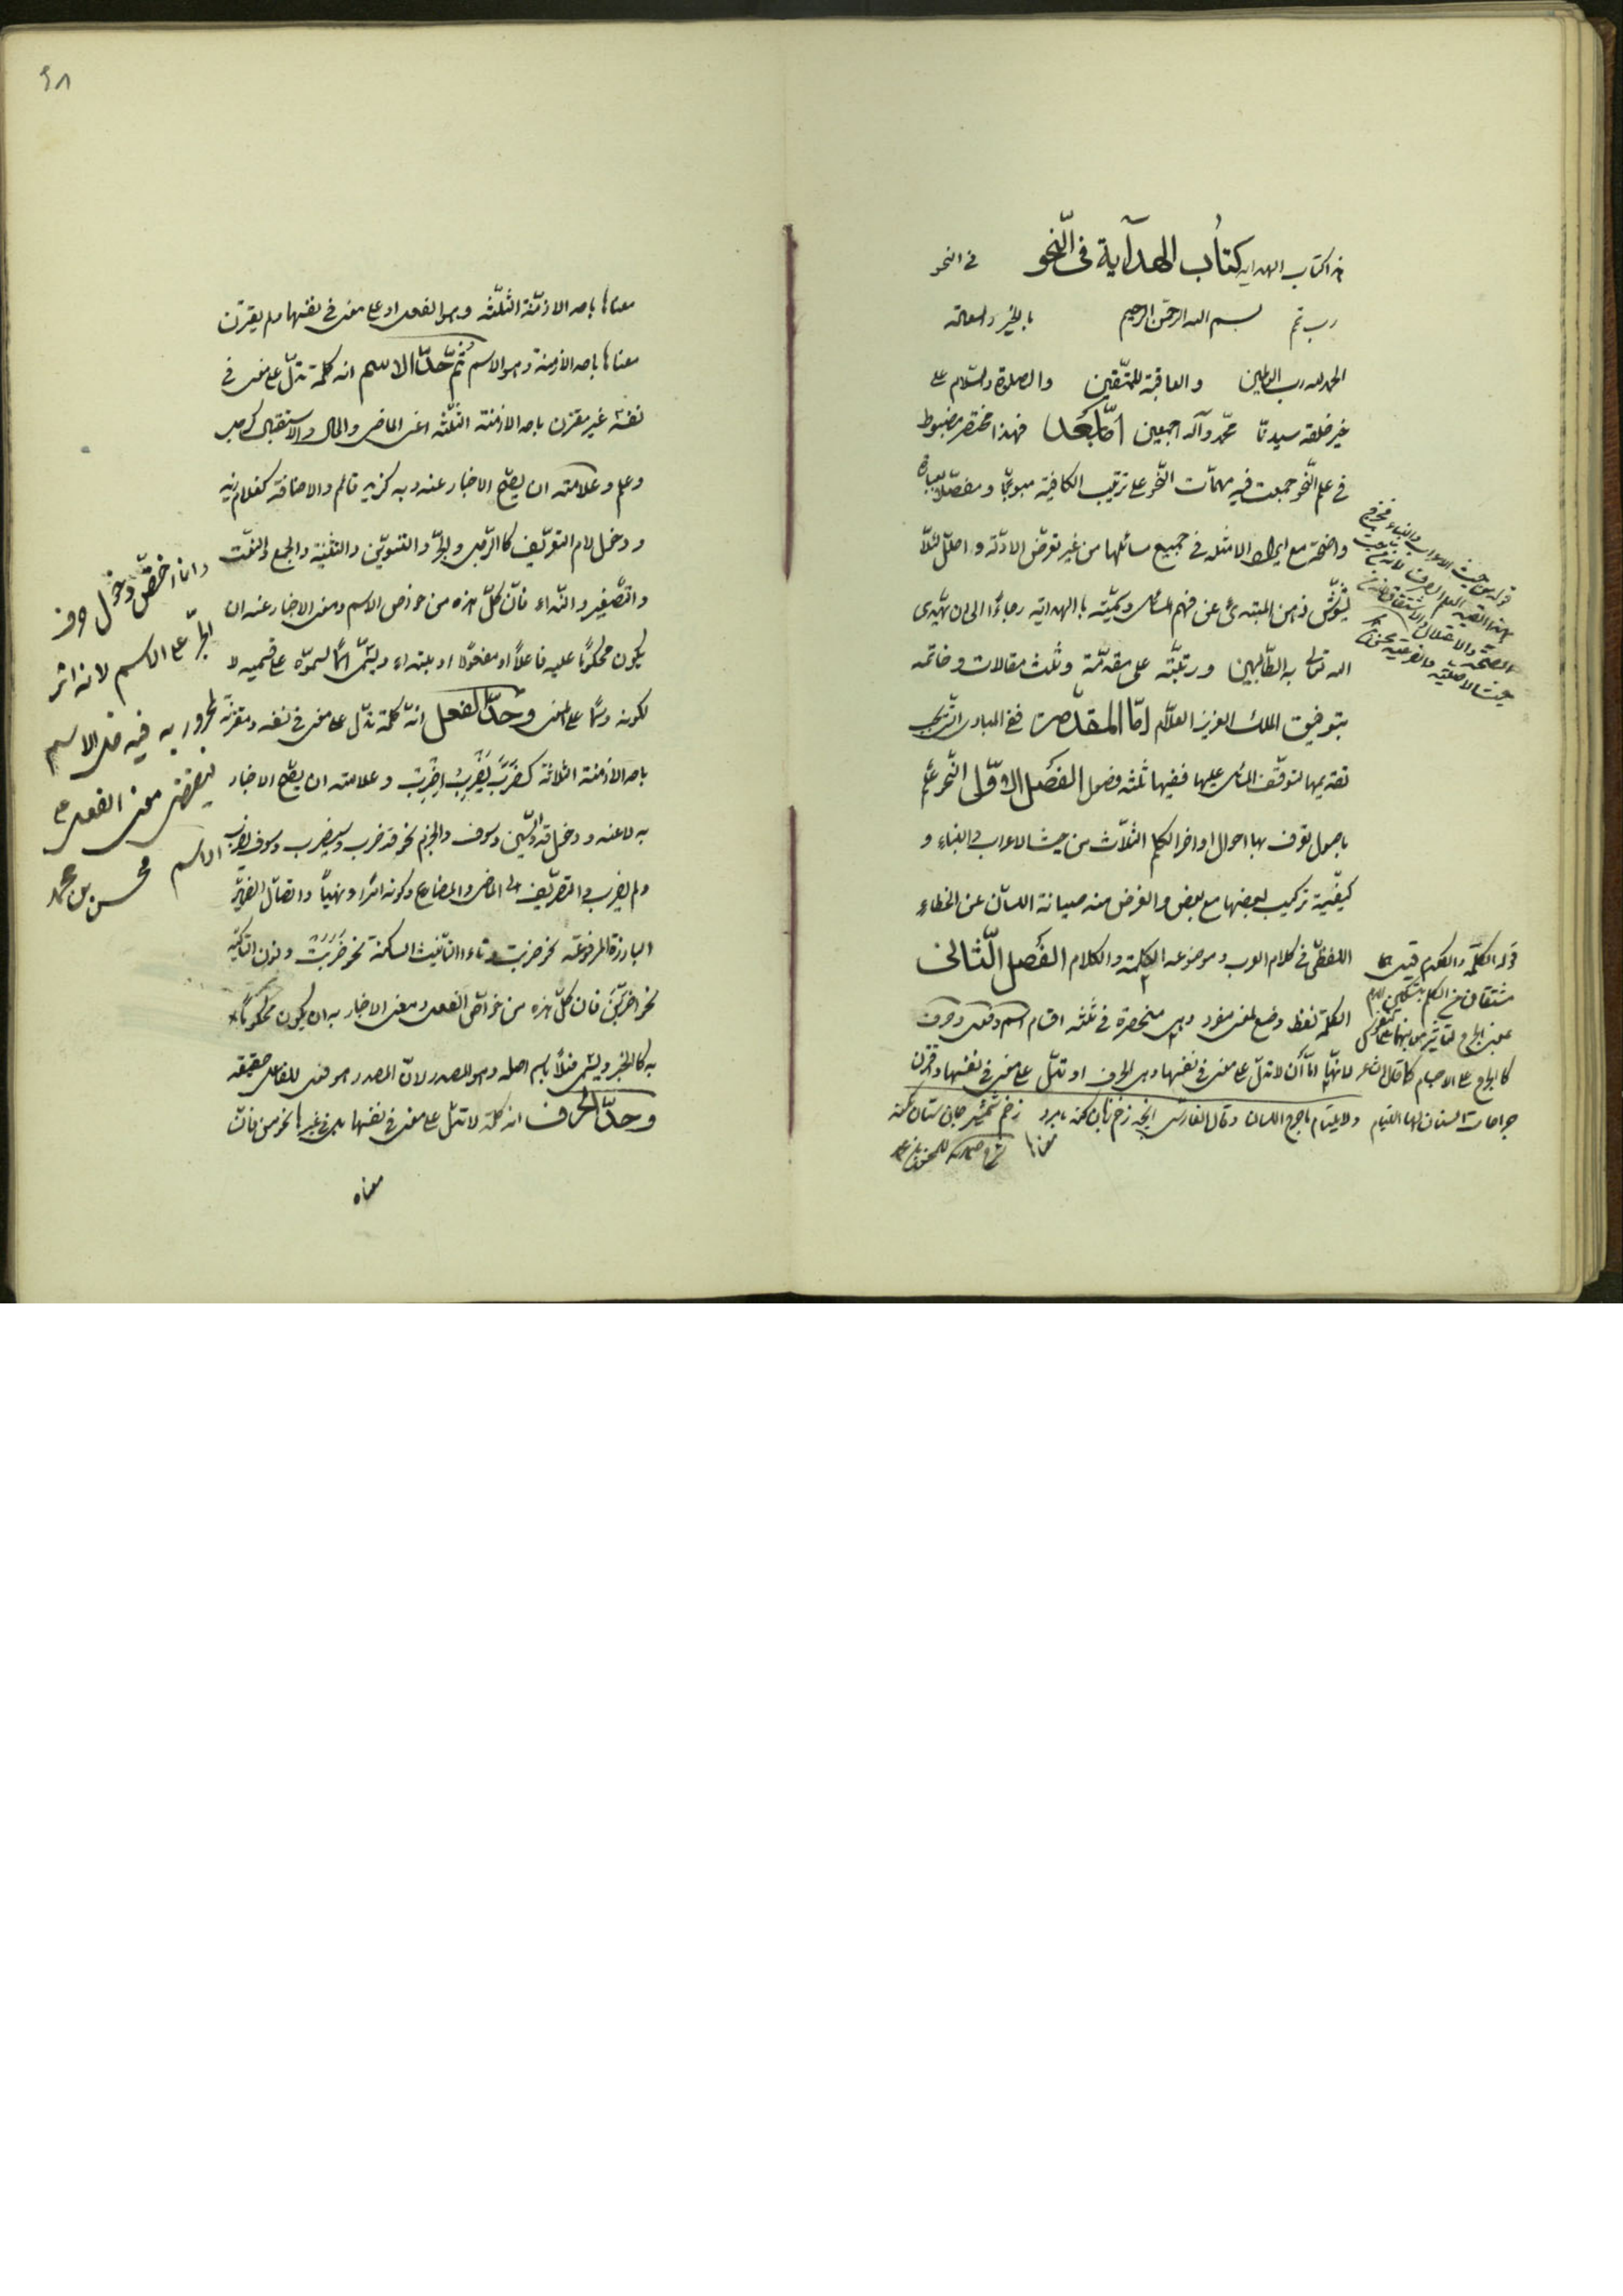 هذا کتاب الهدایه کتاب الهدآیة فی النّحو فی النحو
رب تمم بسم الله الرحمن الرحیم بالخیر والسعادة
الحمد لله رب العالمین والعاقبة للمتّقین والصلوة والسّلام علی
خیر خلقه سیدنا محمّد وآله اجمعین امّا بَعَد فهذا مختصر مضبوط
فی علم النّحو جمعت فیه مهمّات النّحو علی ترتیب الکافیة مبوّبًا ومفصّلًا بعبارة
واضحة مع ایراد الامثله فی جمیع مسائلها من غیر تعرّض الادلّة و العلل لئلّا
یشوّش ذهن المبتدیٔ عن فهم المسائل وسمیّته بالهدایه رجاءً الی ان یهدی
الله تعالی به الطّالبین ورتبّته علی مقدّمة وثلث مقالات وخاتمه
بتوفیق الملک العزیز العلّام امّا المقدّمة ففی المبادی الّتی یجب
تقدیمها لتوقّف المسائل علیها ففیها ثلثه فصول الفصل الاوّل النّحو علم
باصول تعرف بها احوال اواخر الکلم الثلاث من حیث الاعراب والبناء و
کیفیّة ترکیب بعضها مع بعض والغرض منه صیانة اللسان عن الخطاء
اللفظی فی کلام العرب وموضوعه الکلمة والکلام الفَصل الثّانی
الکلمة لفظ وضع لمعنی مفرد وهی منحصرة فی ثلثه اقسام اسم وفعل وحرف
لانها امّا أن لا تدلّ علی معنی فی نفسها وهی الحرف او تدلّ علی معنی فی نفسها واقترن
معناها
قوله من حیث الاعراب والبناء
قوله الکلمة والکلام قیل هما
مشتقان من الکلم بتسکین اللام
کالجرح علی الاجسام کما قال الشاعر
جراحات السنان لها التیام ولا یلتام ما جرح اللسان
معناها باحد الازمنة الثلّثه وهو الفعل او علی معنی فی نفسها ولم یقترن
معناها باحد الأزمنة وهو الاسم ثُمّ حَدّ الاسم انه کلمة تدلّ علی معنی فی
نفسه غیر مقترن باحد الازمنة الثلثه اعنی الماضی والحال والاستقبال کرجل
وعلم وعلامته ان یصحّ الاخبار عنه وبه کزید قائم والاضافة کغلام زید
ودخول لام التعریف کالرّجل والجرّ والتنوین والتثنیة والجمع والنّعت
والتّصغیر والنّداء فانّ کلّ هذه من خواص الاسم ومعنی الاخبار عنه ان
یکون محکومًا علیه فاعلًا او مفعولًا او مبتداء ویسمّی اسمًا لسموّه علی قسمیه لا
لکونه وسمًا علی المعنی وحَدّ الفعل انّه کلمة تدلّ علی معنی فی نفسه ومقترنة
باحد الازمنة الثلاثة کضَرَبَ یَضْرِبُ اِضْرِبْ وعلامته ان یصحّ الاخبار
به لا عنه ودخول قد والسّین وسوف والجزم نحو قد ضرب وسیضرب وسوف یضرب
ولم یضرب والتصریف الی الماضی والمضارع وکونه امرًا ونهیًا واتصال الضمائر
البارزة المرفوعة نحو ضربت وتاء التأنیث الساکنة نحو ضَرَبَتْ ونون التاکید
نحو اضربنّ فان کلّ هذه من خواصّ الفعل ومعنی الاخبار به ان یکون محکومًا
به کالخبر ویسمّی فعلًا باسم اصله وهو المصدر لانّ المصدر هو فعل للفاعل حقیقه
وحَدّ الحَرف انه کلمة لا تدلّ علی معنی فی نفسها بل فی غیرها نحو من فانّ
معناه
وانما اختصّ دخول حرف
الجرّ علی الاسم لانه اثر
المجرور به
الاسم محسن بن محمد